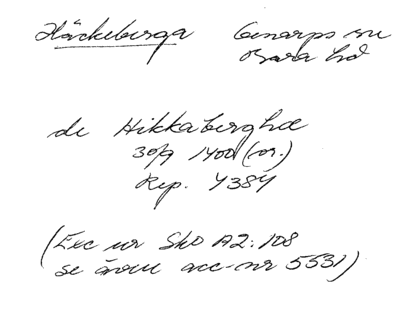 Häckeberga Genarps sn
Bara hd
de Hikkaberghæ
30/9 1400 (or.)
Rep. 4384
(Exc ur SkO A2:108
se även acc-nr 5531)